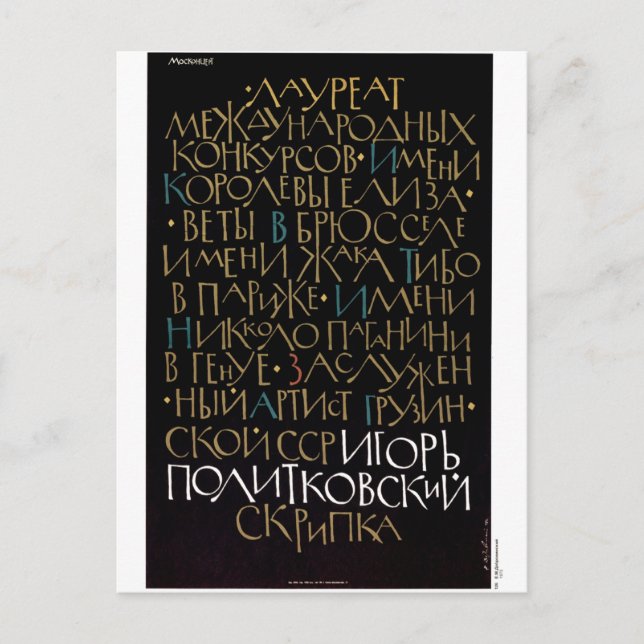 Москонцерт
·ЛАУРЕАТ
МЕЖДУНАРОДНЫХ
КОНКУРСОВ·ИМЕНИ
КОРОЛЕВЫ ЕЛИЗА
·ВЕТЫ В БРЮССЕЛЕ
ИМЕНИ ЖАКА ТИБО
В ПАРИЖЕ·ИМЕНИ
НИККОЛО ПАГАНИНИ
В ГЕНУЕ·ЗАСЛУЖЕН
·НЫЙ АРТИСТ ГРУЗИН·
СКОЙ ССР ИГОРЬ
ПОЛИТКОВСКИЙ
СКРИПКА